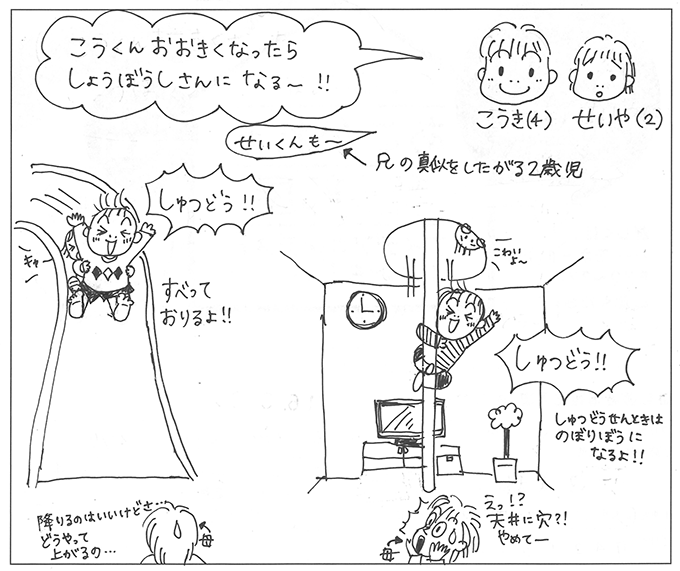 こうくんおおきくなったら
しょうぼうしさんになる〜!!
せいくんも〜
こうき(4)
せいや(2)
兄の真似をしたがる2歳児
しゅつどう!!
キャー
すべって
おりるよ!!
こわい
よ〜
しゅつどう!!
しゅつどうせんときは
のぼりぼうに
なるよ!!
降りるのはいいけどさ…
どうやって
上がるの…
母
えっ!?
天井に穴?!
やめてー
母